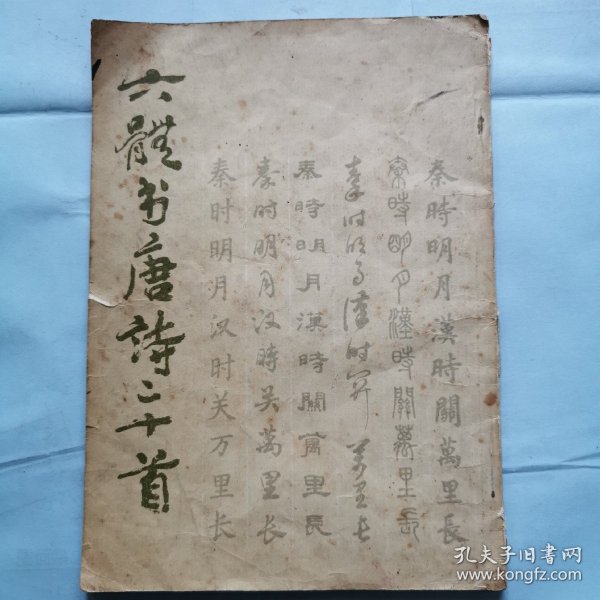 秦時明月漢時關萬里長
秦時朙月漢時關萬里長
秦时明月漢时關萬里長
秦時明月漢時關萬里長
秦时明月汉時关萬里长
秦时明月汉时关万里长
六體书唐詩二十首
孔夫子旧书网
www.kongfz.com